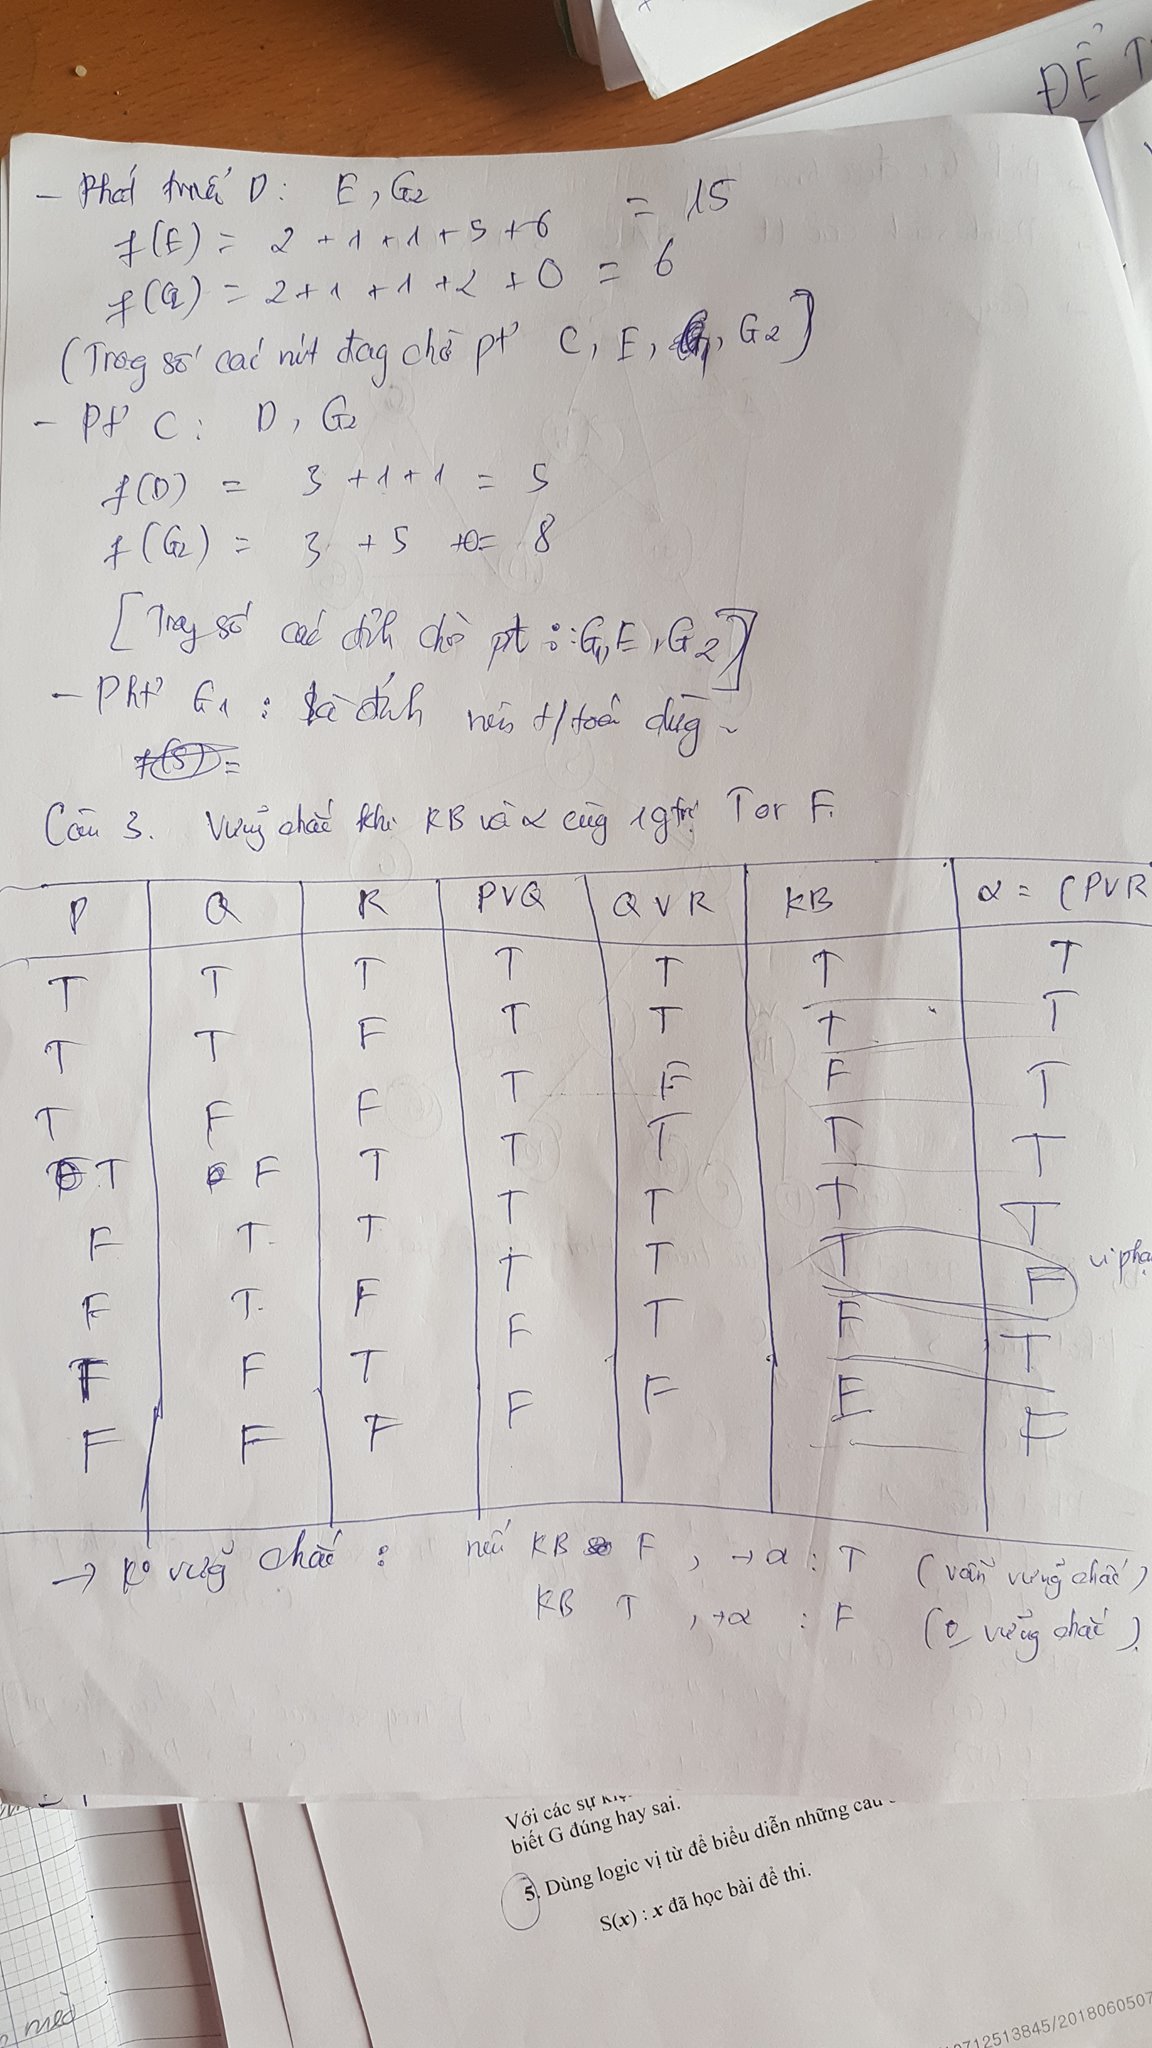 ĐỀ T
- Phát triể D: E, G2
f(E) = 2 + 1 + 1 + 5 + 6 = 15
f(G2) = 2 + 1 + 1 + 2 + 0 = 6
(Trog số các nút đag chờ pt C, E, G1, G2]
- Pt C: D, G2
f(D) = 3 + 1 + 1 = 5
f(G2) = 3 + 5 + 0 = 8
[Trog số các đỉnh chờ pt : G1, E, G2]
- Pht G1 : là đính nên t/toán dừg
f(S) =
Câu 3. Vững chắc khi KB và α cùg 1 gtrị T or F.
P Q R PVQ QVR KB α = (PVR
T T T T T T T
T T F T T T T
T F F T F F T
T F T T T T T
F T T T T T T
F T F T T T F vi phạ
F F T F T F T
F F F F F F F
→ Ko vữg chắc : nếu KB F , → α : T (vẫn vững chắc)
KB T , → α : F (0 vững chắc).
Với các sự kiệ
biết G đúng hay sai.
5. Dùng logic vị từ để biểu diễn những câu
S(x) : x đã học bài để thi.
0712513845/2018060507